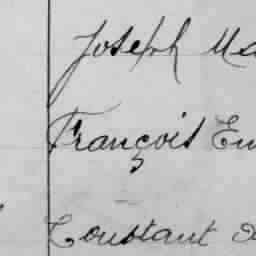 Joseph Ma
François Em
Constant